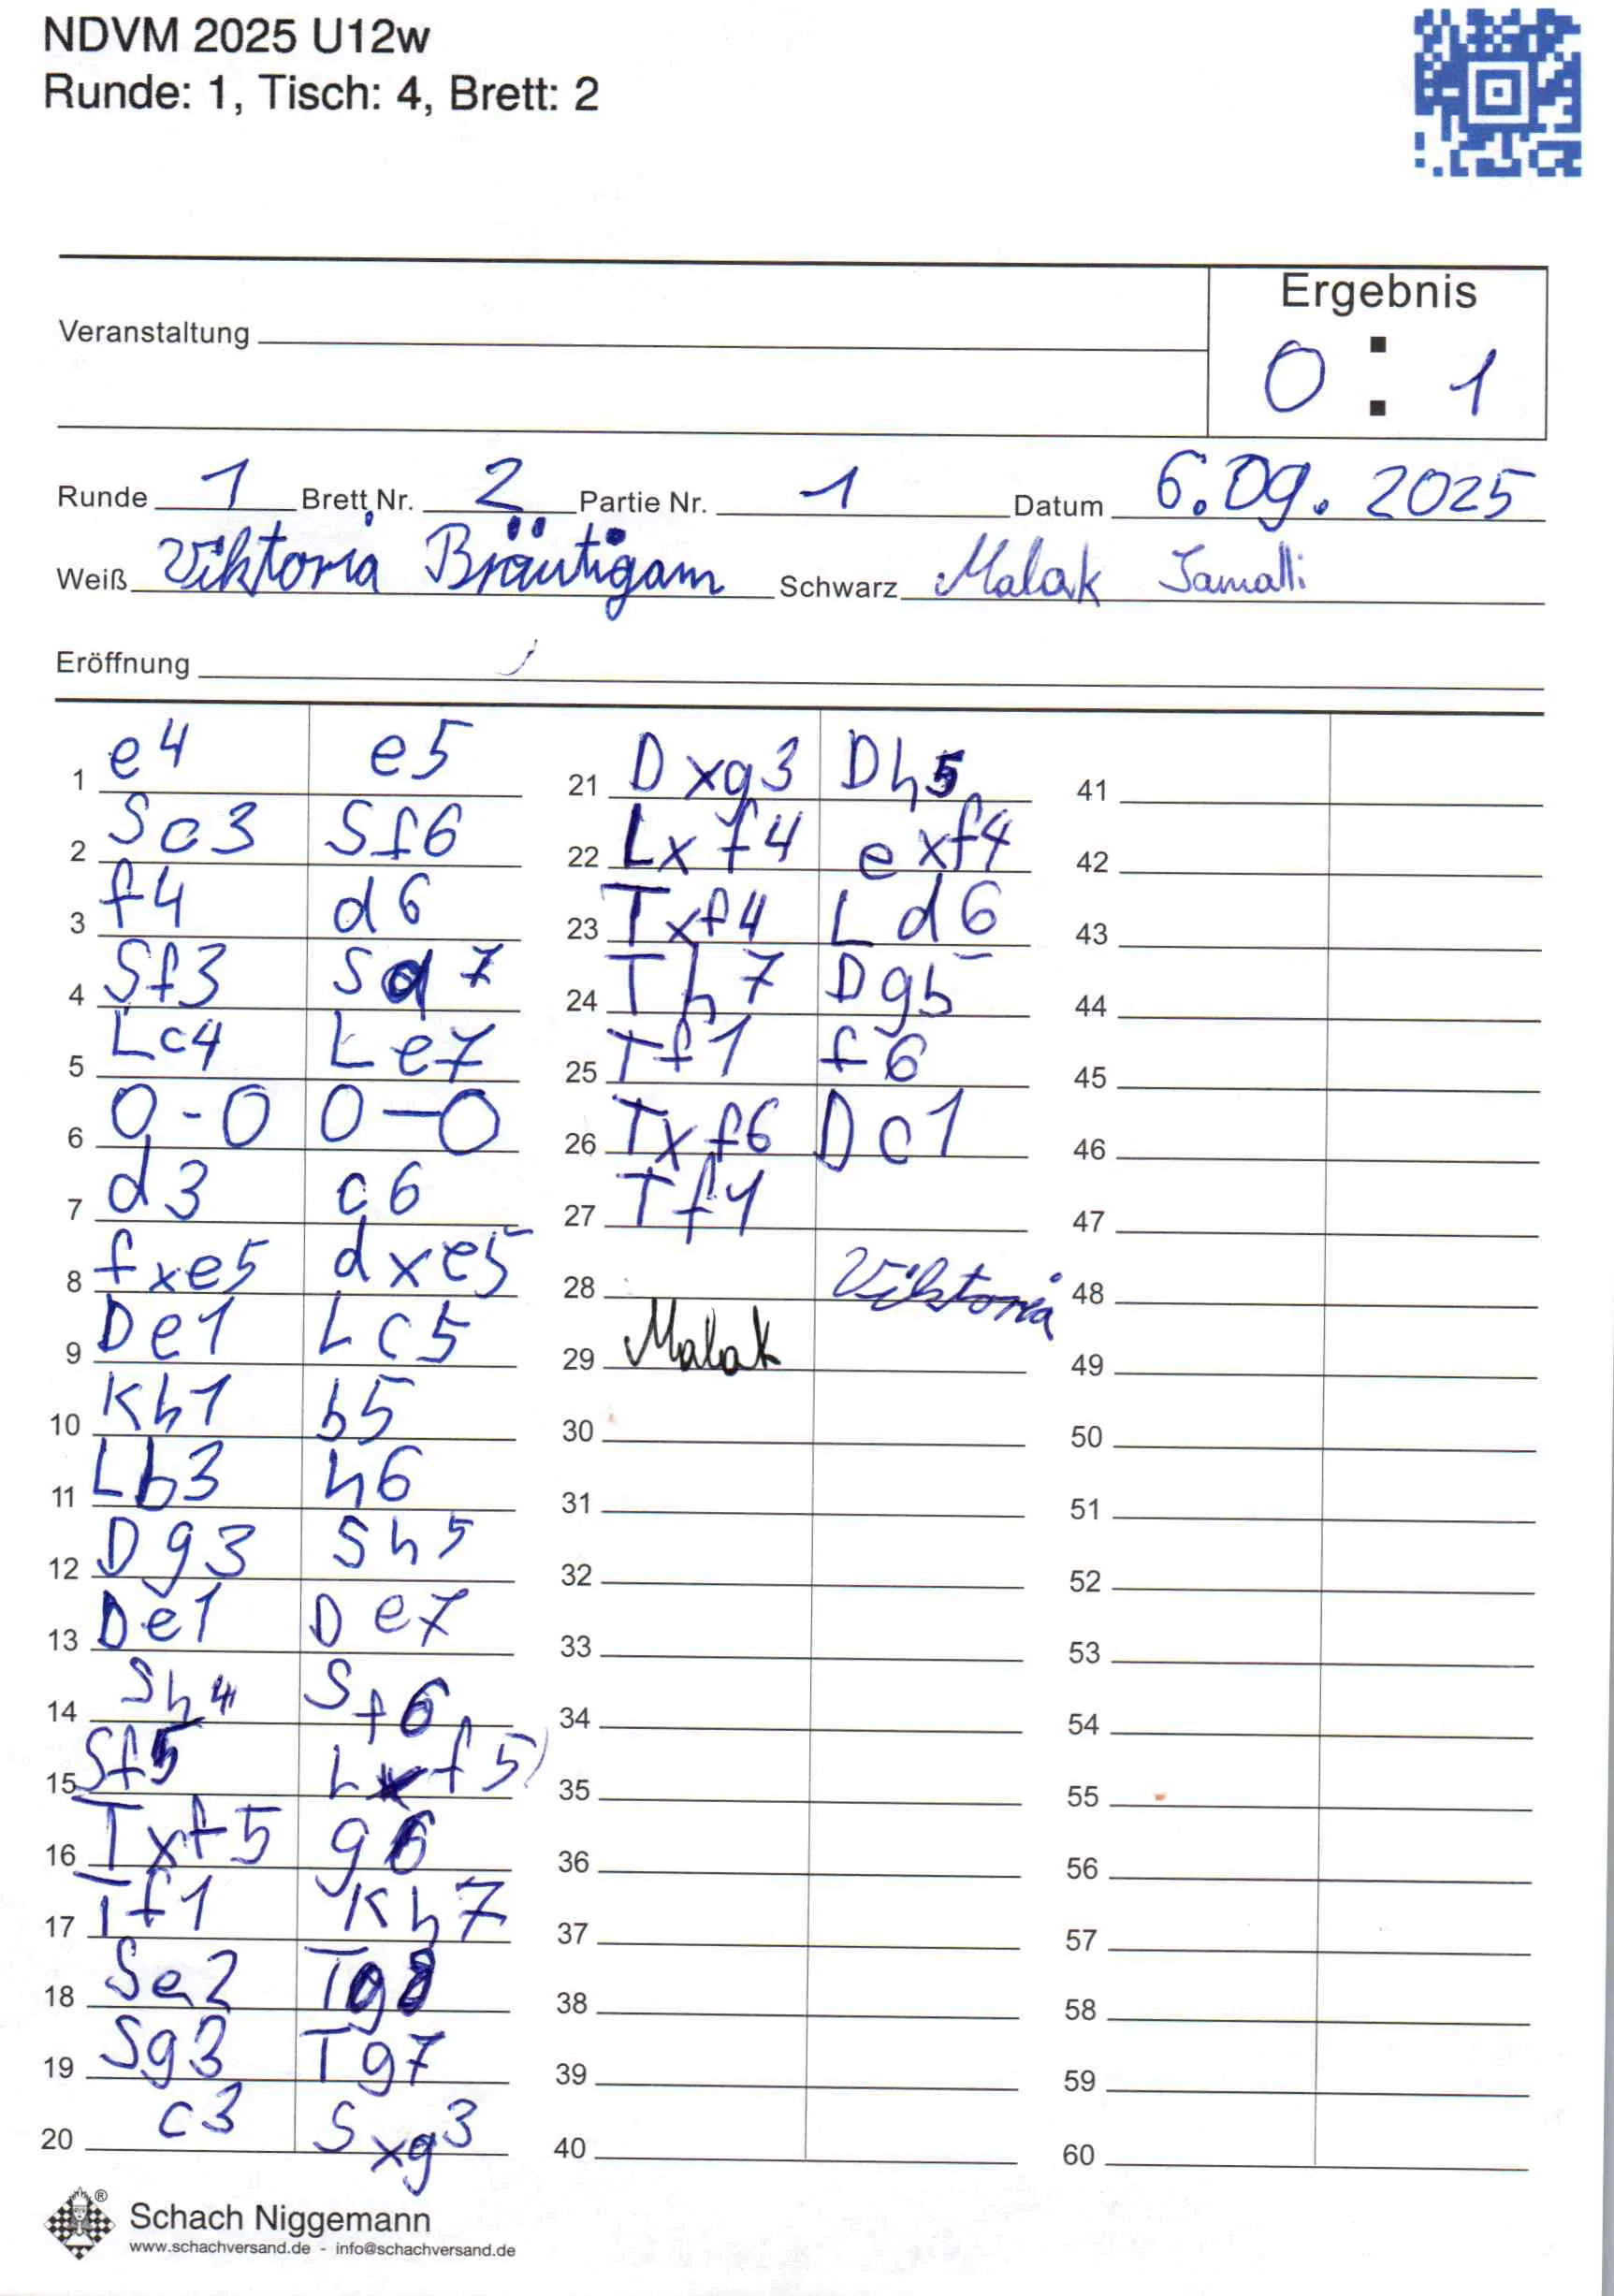 NDVM 2025 U12w
Runde: 1, Tisch: 4, Brett: 2
Ergebnis
0 : 1
Veranstaltung
Runde 1 Brett Nr. 2 Partie Nr. 1 Datum 6.09.2025
Weiß Viktoria Bräutigam Schwarz Malak Jamalli
Eröffnung
1 e4 e5
2 Sc3 Sf6
3 f4 d6
4 Sf3 Sd7
5 Lc4 Le7
6 0-0 0-0
7 d3 c6
8 fxe5 dxe5
9 De1 Lc5
10 Kh1 b5
11 Lb3 h6
12 Dg3 Sh5
13 De1 De7
14 Sh4 Sf6
15 Sf5 Lxf5
16 Txf5 g6
17 Tf1 Kh7
18 Se2 Tg8
19 Sg3 Tg7
20 c3 Sxg3
21 Dxg3 Dh5
22 Lxf4 exf4
23 Txf4 Ld6
24 Th7 Dg5
25 Tf1 f6
26 Txf6 Dc1
27 Tf1
28 Viktoria
29 Malak
30
31
32
33
34
35
36
37
38
39
40
41
42
43
44
45
46
47
48
49
50
51
52
53
54
55
56
57
58
59
60
Schach Niggemann
www.schachversand.de - info@schachversand.de